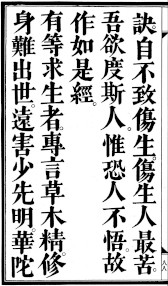 訣自不致傷生傷生人最苦。
吾欲度斯人。惟恐人不悟。故
作如是經。
有等求生者。專言草木精。修
身難出世。遠害少先明。華陀